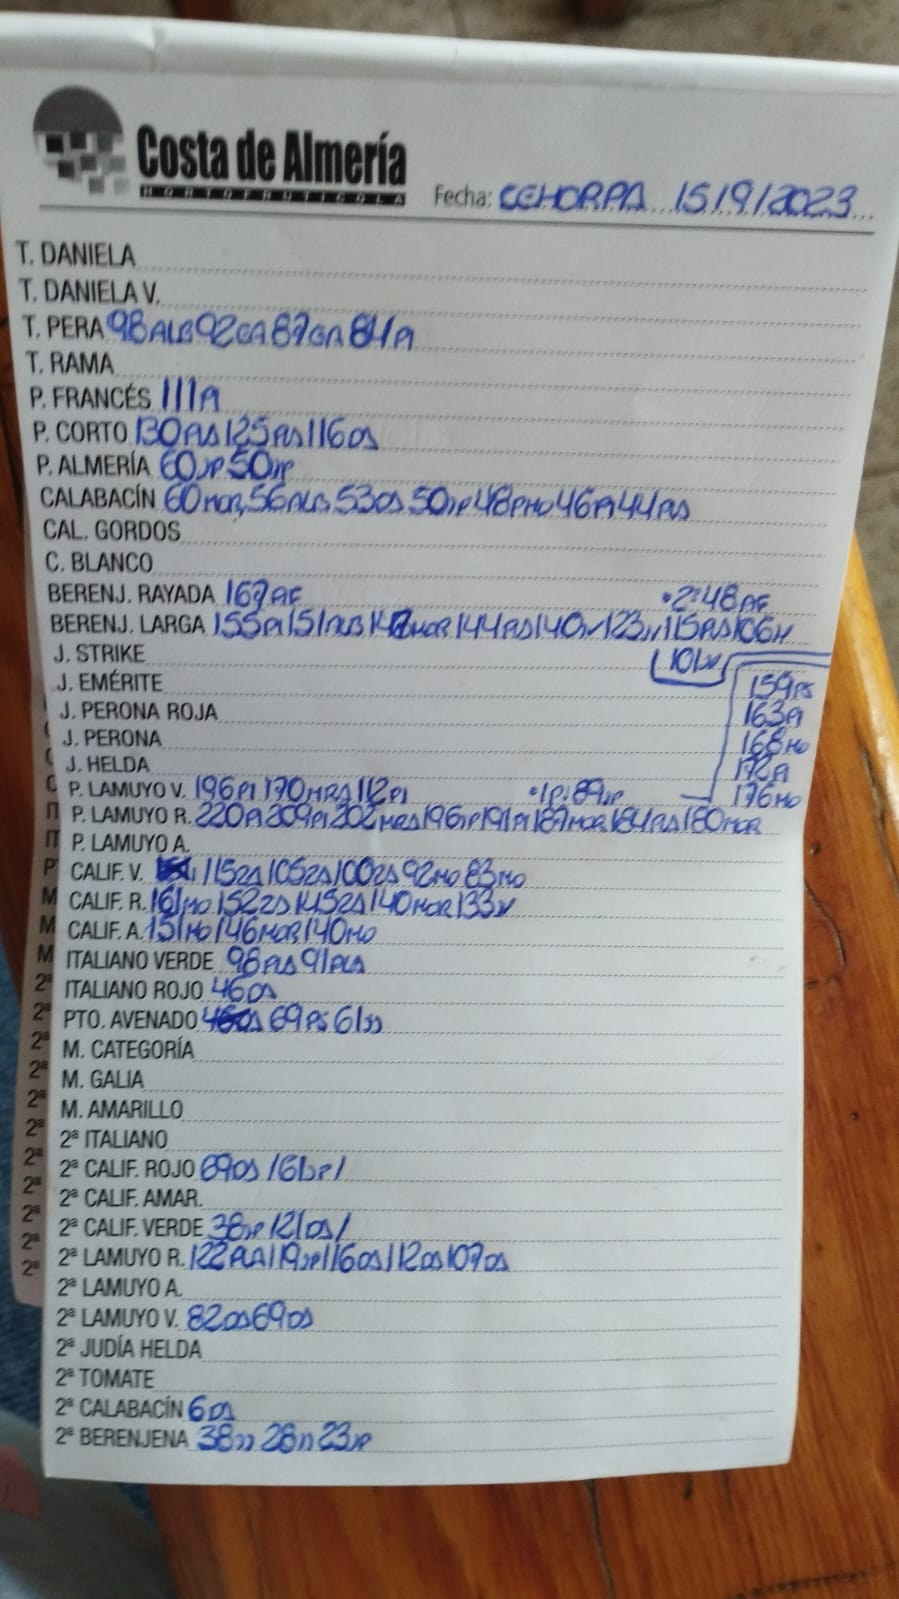 Costa de Almería
HORTOFRUTICOLA
Fecha: CEHORPA 15/9/2023
T. DANELA
T. DANIELA V.
T. PERA 98ALB 92GA 87GA 84PI
T. RAMA
P. FRANCÉS 111A
P. CORTO 130PLS 125PLS 116OS
P. ALMERÍA 60JP 50JP
CALABACÍN 60MOR 56ALB 53OS 50JP 48PMO 46PI 44PLS
CAL. GORDOS
C. BLANCO
BERENJ. RAYADA 167AF •2ª:48AF
BERENJ. LARGA 155PI 151 147MOR 144PLS 140 123 115PLS 106
J. STRIKE 101
J. EMÉRITE 159PS
J. PERONA ROJA 163PI
J. PERONA 168MO
J. HELDA 172A
P. LAMUYO V. 196PI 170MRA 112PI •1P:89JP 176MO
P. LAMUYO R. 220PI 209PI 202MRA 196JP 191PI 187MOR 184PLS 180MOR
P. LAMUYO A.
CALIF. V. 115ZA 105ZA 100ZA 92MO 83MO
CALIF. R. 161MO 152ZA 145ZA 140MOR 133
CALIF. A. 151MO 146MOR 140MO
ITALIANO VERDE 98PLA 91PLA
ITALIANO ROJO 46OS
PTO. AVENADO 69PS 61JJ
M. CATEGORÍA
M. GALIA
M. AMARILLO
2ª ITALIANO
2ª CALIF. ROJO 69OS /61JP/
2ª CALIF. AMAR.
2ª CALIF. VERDE 38JP 121OS/
2ª LAMUYO R. 122PLA 119JP 116OS 112OS 107OS
2ª LAMUYO A.
2ª LAMUYO V. 82OS 69OS
2ª JUDÍA HELDA
2ª TOMATE
2ª CALABACÍN 6OS
2ª BERENJENA 38JJ 28JJ 23JP